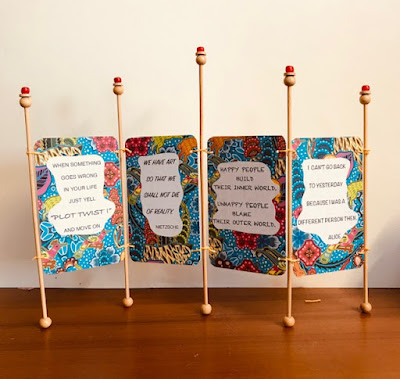 WHEN SOMETHING
GOES WRONG
IN YOUR LIFE
JUST YELL
"PLOT TWIST!"
AND MOVE ON
WE HAVE ART
SO THAT WE
SHALL NOT DIE
OF REALITY.
NIETZSCHE
HAPPY PEOPLE
BUILD
THEIR INNER WORLD.
UNHAPPY PEOPLE
BLAME
THEIR OUTER WORLD.
I CAN'T GO BACK
TO YESTERDAY
BECAUSE I WAS A
DIFFERENT PERSON THEN.
ALICE